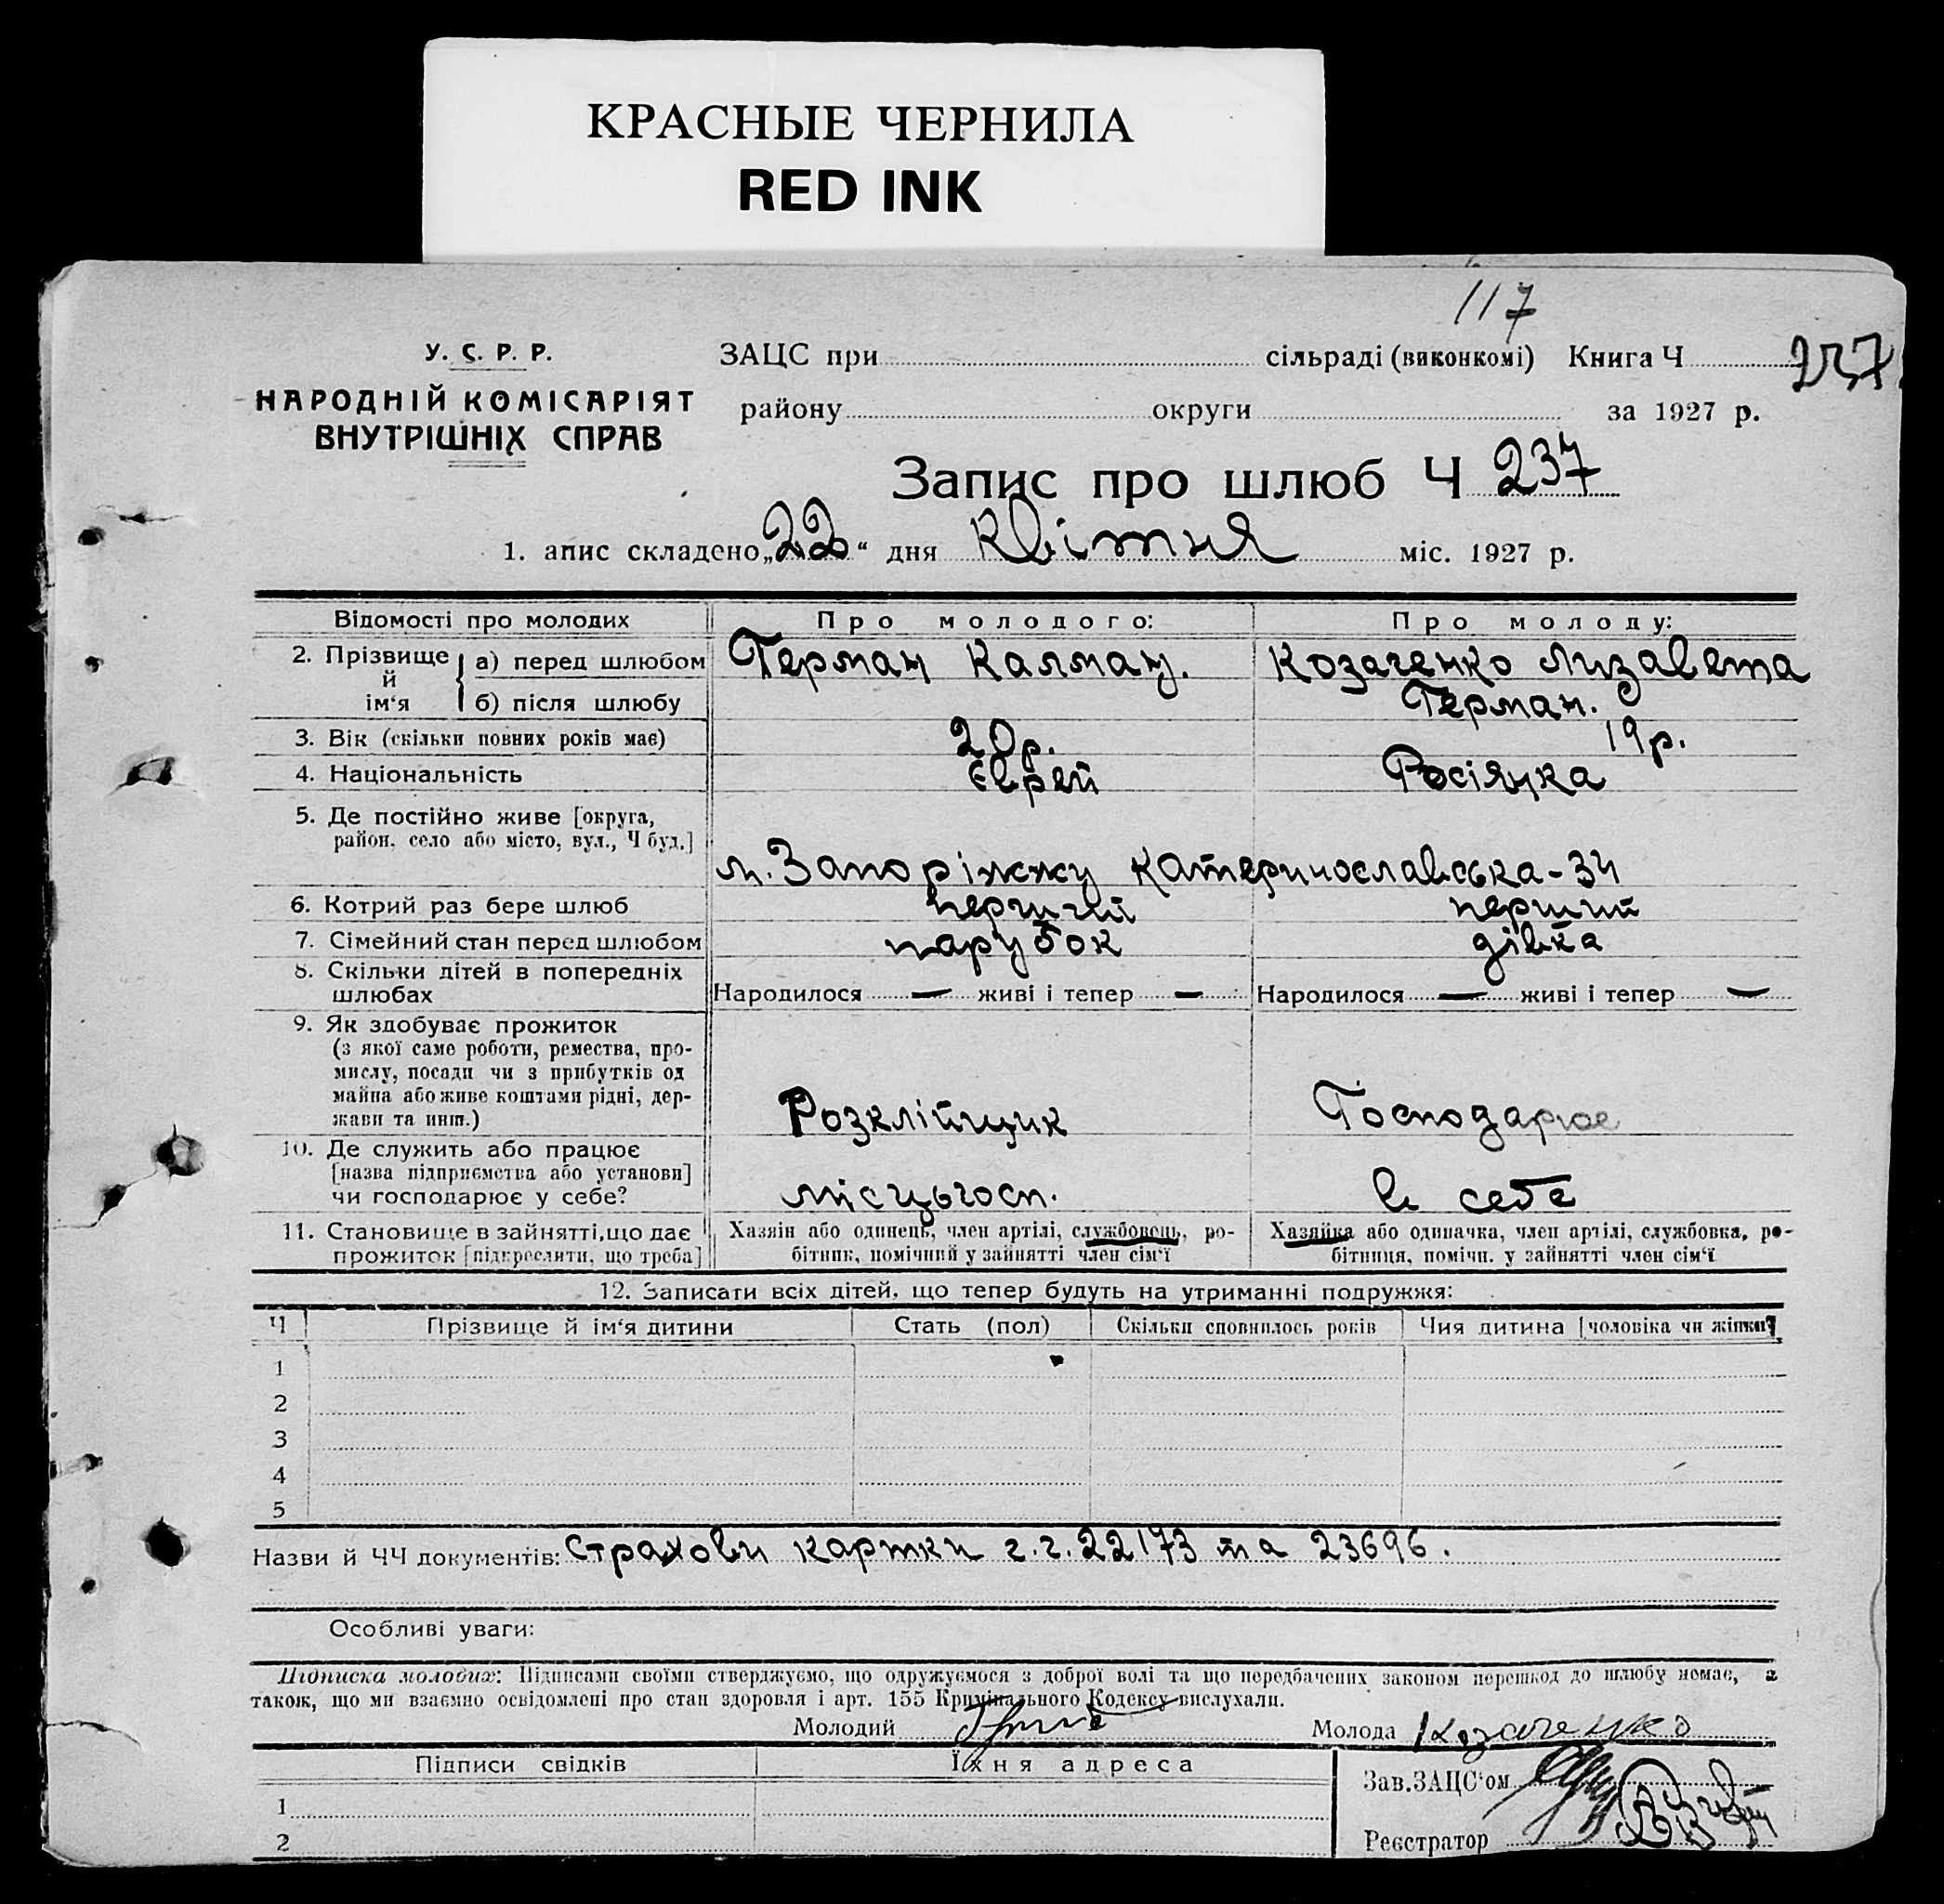 КРАСНЫЕ ЧЕРНИЛА
RED INK
117
У. С. Р. Р.
НАРОДНІЙ КОМІСАРІЯТ
ВНУТРІШНІХ СПРАВ
ЗАЦС при сільраді (виконкомі) Книга Ч 237
району округи за 1927 р.
Запис про шлюб Ч 237
1. апис складено „22“ дня Квітня міс. 1927 р.
Відомості про молодих Про молодого: Про молоду:
2. Прізвище й ім‘я а) перед шлюбом Герман Калман. Козаченко Лизавета
б) після шлюбу Герман.
3. Вік (скільки повних років має) 20р. 19р.
4. Національність Єврей Росіянка
5. Де постійно живе [округа,
район, село або місто, вул., Ч буд.]
м. Запоріжжу Катеринославська-34
6. Котрий раз бере шлюб перший перший
7. Сімейний стан перед шлюбом парубок дівка
8. Скільки дітей в попередніх
шлюбах Народилося — живі і тепер — Народилося — живі і тепер —
9. Як здобуває прожиток
(з якої саме роботи, ремества, про-
мислу, посади чи з прибутків од
майна або живе коштами рідні, дер-
жави та инш.) Розклійщик Господарює
10. Де служить або працює
[назва підприємства або установи]
чи господарює у себе? місцьгосп. в себе
11. Становище в зайнятті, що дає Хазяін або одинець, член артілі, службовець, ро- Хазяйка або одиначка, член артілі, службовка, ро-
прожиток [підкреслити, що треба] бітник, помічний у зайнятті член сім‘ї бітниця, помічн. у зайнятті член сім‘ї
12. Записати всіх дітей, що тепер будуть на утриманні подружжя:
Ч Прізвище й ім‘я дитини Стать (пол) Скільки сповнилось років Чия дитина [чоловіка чи жінки]
1
2
3
4
5
Назви й ЧЧ документів: Страхови картки г.г. 22173 та 23696.
Особливі уваги:
Підписка молодих: Підписами своїми стверджуємо, що одружуємося з доброї волі та що передбачених законом перешкод до шлюбу немає, а
також, що ми взаємно освідомлені про стан здоровля і арт. 155 Кримінального Кодексу вислухали.
Молодий Молода Козаченко
Підписи свідків Їхня адреса Зав. ЗАЦС‘ом
1
2 Реєстратор